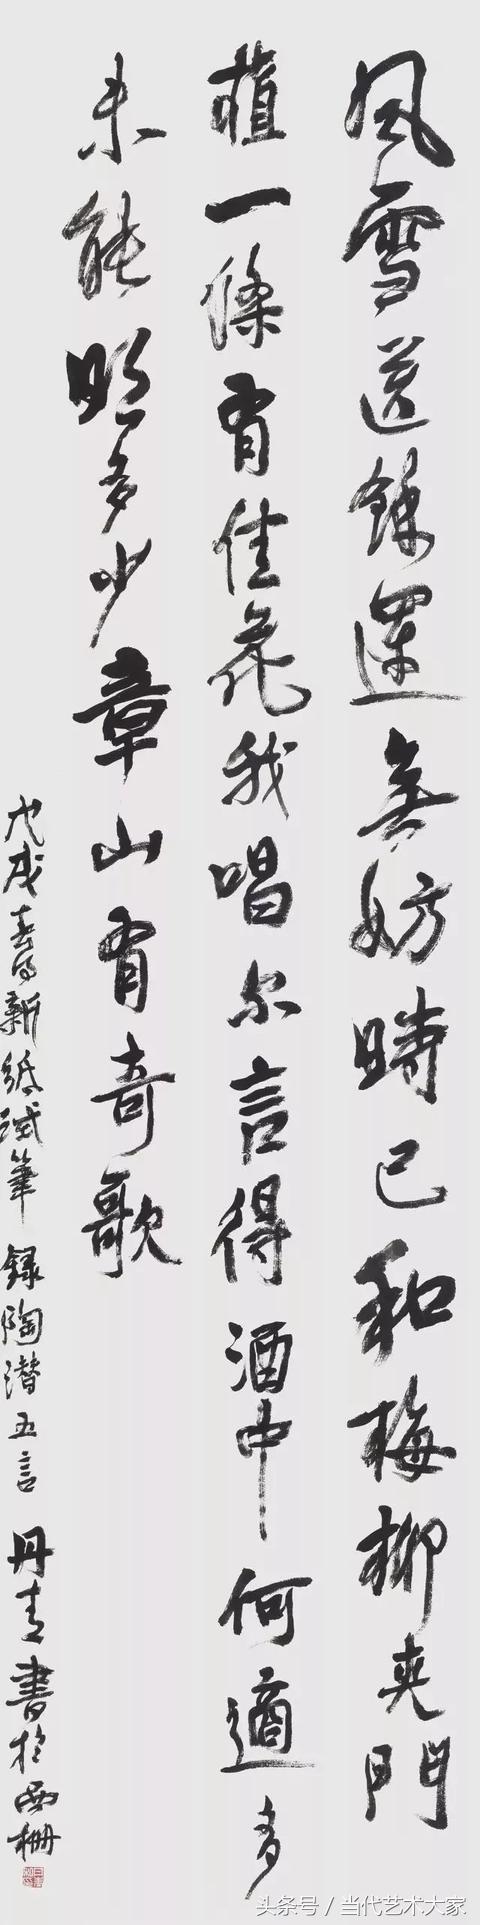 風雪送餘運無妨時已和梅柳夾門
植一條有佳花我唱尔言得酒中何適多
未能明多少章山有奇歌
戊戌春日新紙試筆 錄陶潛五言 丹青書於西柵
头条号 / 当代艺术大家